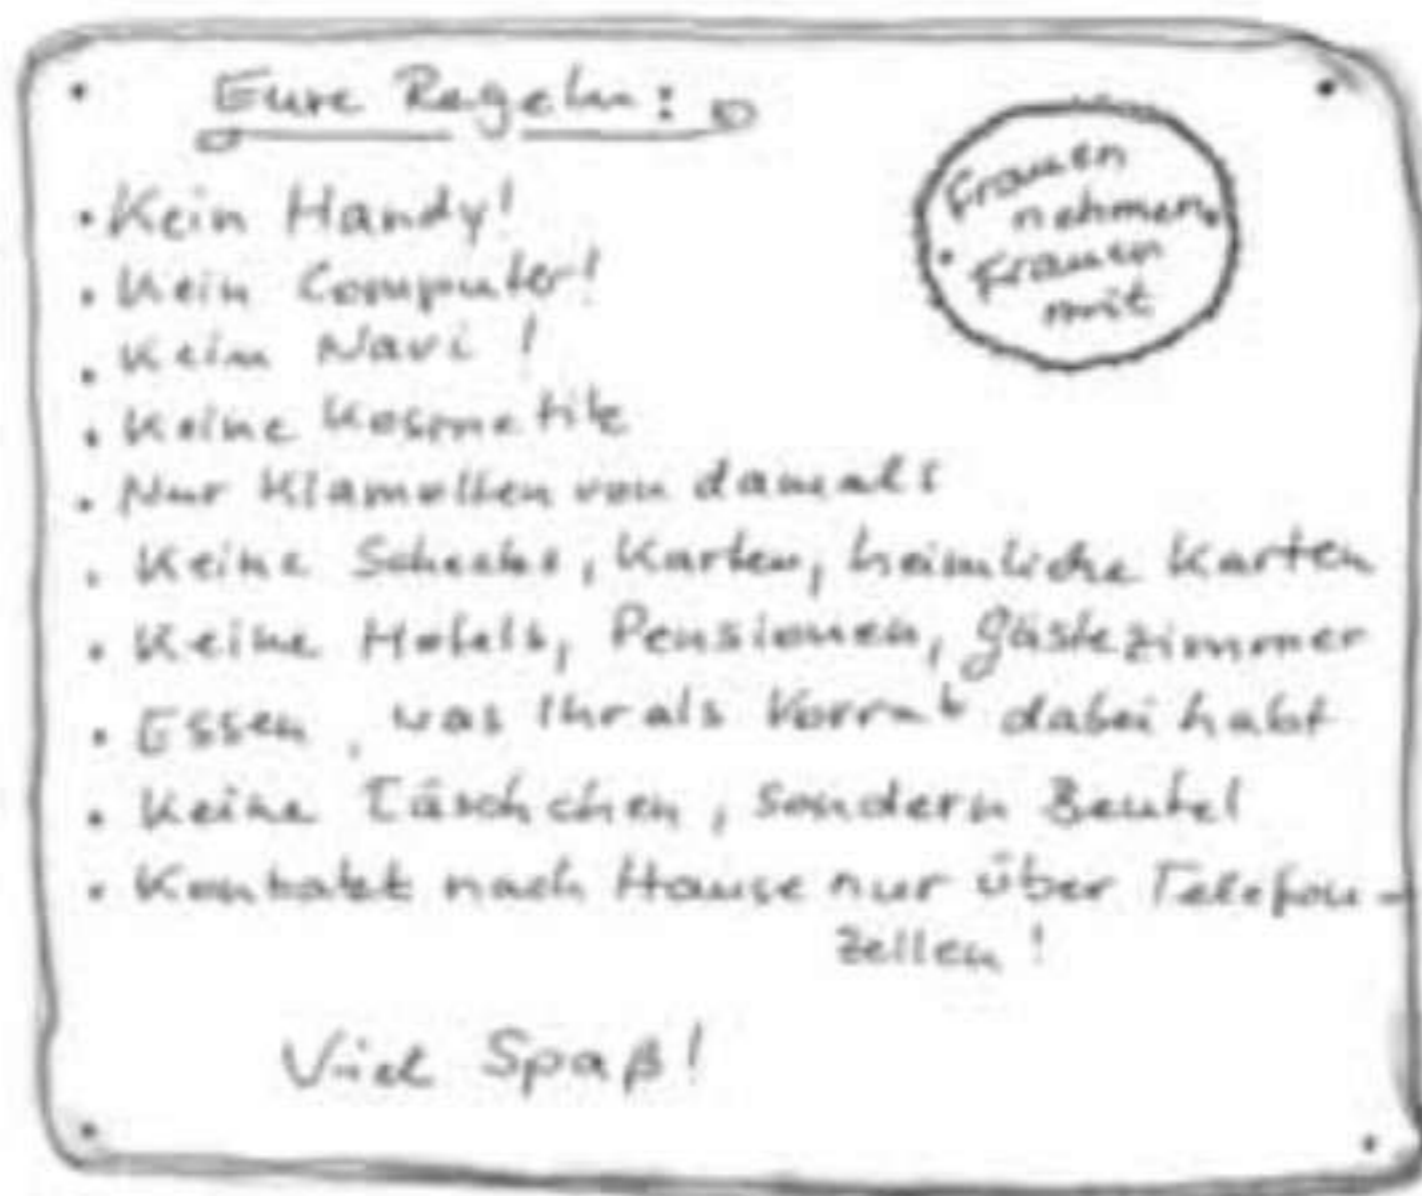 Eure Regeln:
• Kein Handy!
• Kein Computer!
• Kein Navi!
• Keine Kosmetik
• Nur Klamotten von damals
• Keine Schecks, Karten, heimliche Karten
• Keine Hotels, Pensionen, Gästezimmer
• Essen, was Ihr als Vorrat dabei habt
• Keine Täschchen, sondern Beutel
• Kontakt nach Hause nur über Telefon-
zellen!
Viel Spaß!
Frauen
nehmen
Frauen
mit